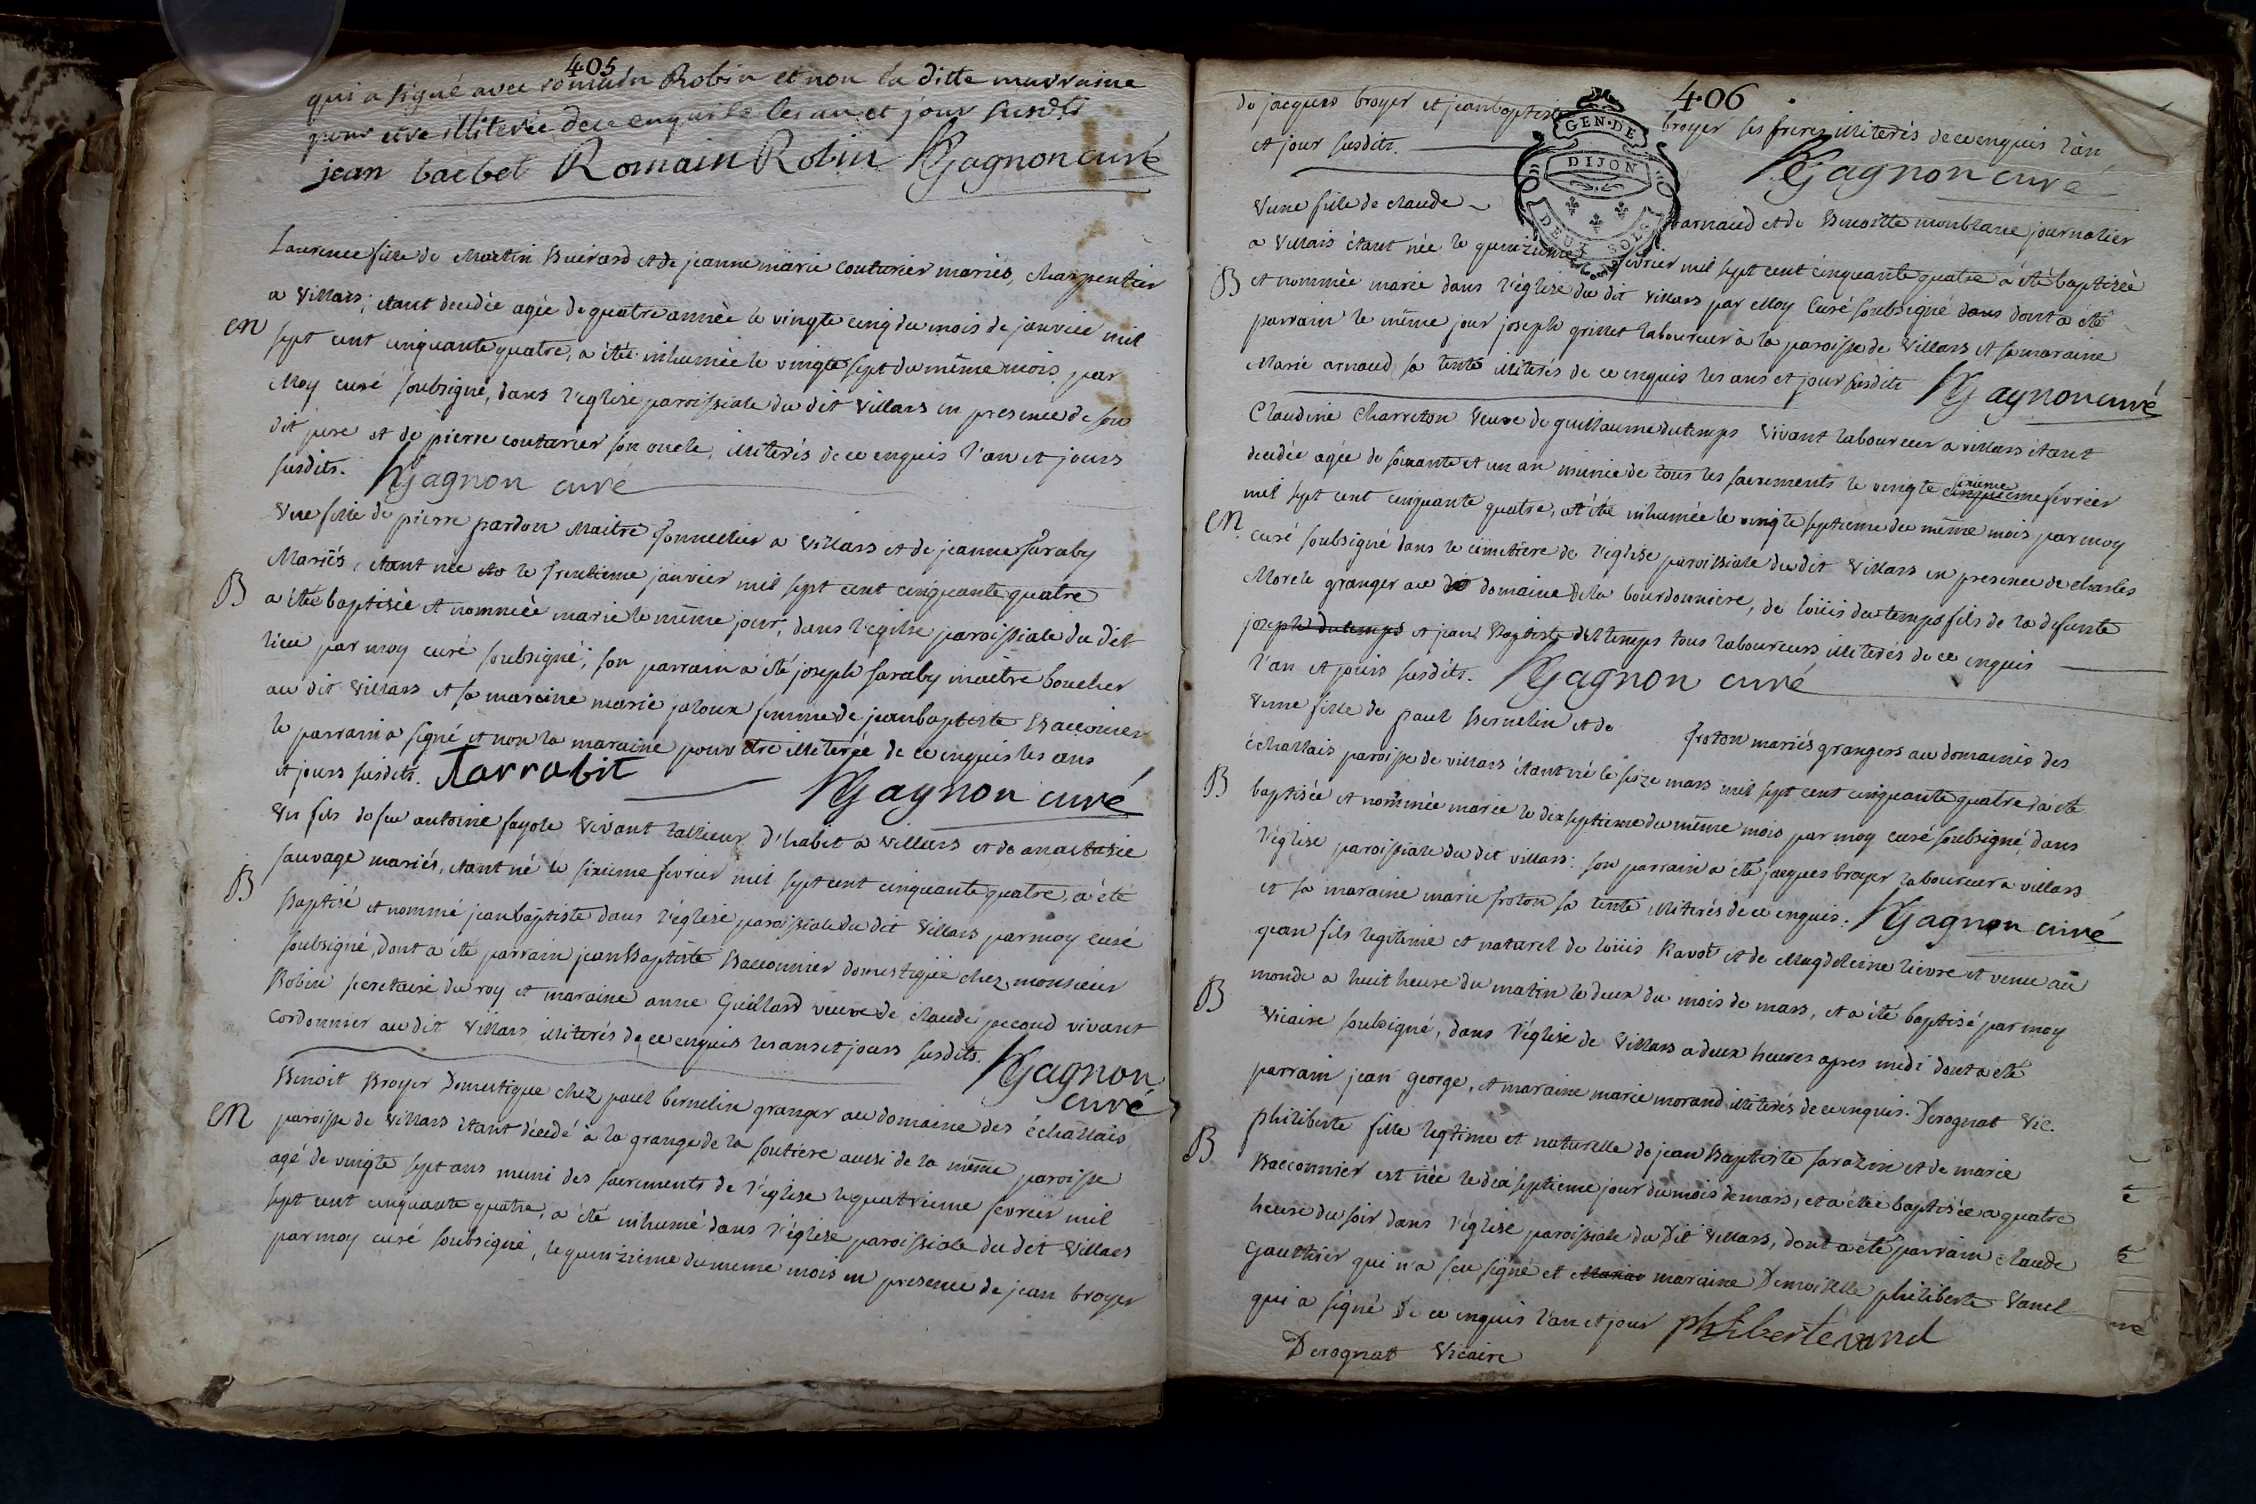 405
qui a signé avec romain Robin et non la ditte marraine
pour etre illiterée de ce enquise les an et jour susdts
jean barbet Romain Robin Gagnon curé
Laurence fille de Martin Buirard et de jeanne marie couturier mariés, charpentier
a Villars; etant decedée agée de quatre année le vingte cinq du mois de janvier mil
en sept cent cinquante quatre, a été inhumée le vingte sept du même mois par
Moy curé soubsigné, dans l'eglise paroissiale du dit Villars en presence de son
dit pere et de pierre couturier son oncle, illiterés de ce enquis l'an et jours
susdits. Gagnon curé
Une fille de pierre pardon Maitre tonnellier a Villars et de jeanne saraby
Mariés, etant née le trentieme janvier mil sept cent cinquante quatre
B a été baptisée et nommée marie le même jour, dans l'eglise paroissiale du dit
lieu par moy curé soubsigné; son parrain a été joseph saraby maitre boucher
au dit Villars et sa maraine marie jaloux femme de jeanbaptiste Bacconier
le parrain a signé et non la maraine pour etre illiterée de ce enquis les ans
et jours susdits. Tarrabit Gagnon curé
Un fils de feu antoine fayole Vivant tallieur d'habit a Villars et de anastasie
sauvage mariés, etant né le sixieme fevrier mil sept cent cinquante quatre, a été
B Baptisé et nommé jeanbaptiste dans l'église paroissiale du dit Villars par moy curé
soubsigné, dont a été parrain jean Baptiste Bacconnier domestique chez monsieur
Robin secretaire du roy et maraine anne Guillard veuve de claude pecoud vivant
cordonnier au dit Villars illiterés de ce enquis les ans et jours susdits. Gagnon
curé
Benoit Broyer Domestique chez paul bernelin granger au domaine des échallais
en paroisse de Villars etant décedé à la grange de la soutiere aussi de la même paroisse
agé de vingte sept ans muni des sacrements de l'église le quatrieme fevrier mil
sept cent cinquante quatre, a été inhumé dans l'église paroissiale du dit Villars
par moy curé soubsigné, le quinzieme du meme mois en presence de jean broyer
406
de jacques broyer et jeanbaptiste broyer ses freres illiterés de ce enquis l'an
et jour susdits. Gagnon curé
GEN·DE
DIJON
DEUX SOLS
Vune fille de claude arnaud et de Benoitte monblanc journalier
a Villars étant née le quinzieme fevrier mil sept cent cinquante quatre a été baptisée
B et nommée marie dans l'église du dit Villars par Moy Curé soubsigné dans dont a été
parrain le même jour joseph grillet laboureur à la paroisse de Villars et sa maraine
Marie arnaud sa tente illiterés de ce enquis les ans et jour susdits Gagnon curé
Claudine Charreton Veuve de guillaume dutemps Vivant laboureur a villars étant
decedée agée de soixante et un an munie de tous les sacrements le vingte cinquieme sixieme fevrier
mil sept cent cinquante quatre, at été inhumée le vingte septieme du même mois par moy
en curé soubsigné dans le cimetiere de l'église paroissiale du dit Villars en presence de charles
Morele granger au domaine de la bourdonniere, de loüis dutemps fils de la defunte
joseph dutemps et jean Baptiste deltemps tous laboureurs illiterés de ce enquis
l'an et jours susdits. Gagnon curé
Vune fille de paul Bernelin et de froton mariés grangers au domainés des
échallais paroisse de villars étant né le seize mars mil sept cent cinquante quatre a été
B baptisée et nommée marie le dix septieme du même mois par moy curé soubsigné, dans
l'église paroissiale du dit villars: son parrain a été jacques broyer laboureur a villars
et sa maraine marie froton sa tente illiterés de ce enquis. Gagnon curé
jean fils legitime et naturel de loüis Ravot et de Magdeleine lievre et venu au
monde a huit heure du matin le deux du mois de mars, et a été baptisé par moy
B Vicaire soubsigné, dans l'église de Villars a deux heures apres midi dont a été
parrain jean george, et maraine marie morand illiterés de ce enquis. Derognat Vic.
philiberte fille legtime et naturelle de jean Baptiste sarazin et de marie
B Bacconnier est née le dix septieme jour du mois de mars, et a étée baptisée a quatre
heure du soir dans l'église paroissiale du Dit Villars, dont a été parrain claude
Gauthier qui n'a seu signé et maraine Demoiselle philiberte Vanel
qui a signé De ce enquis l'an et jour philiberte vanel
Derognat Vicaire